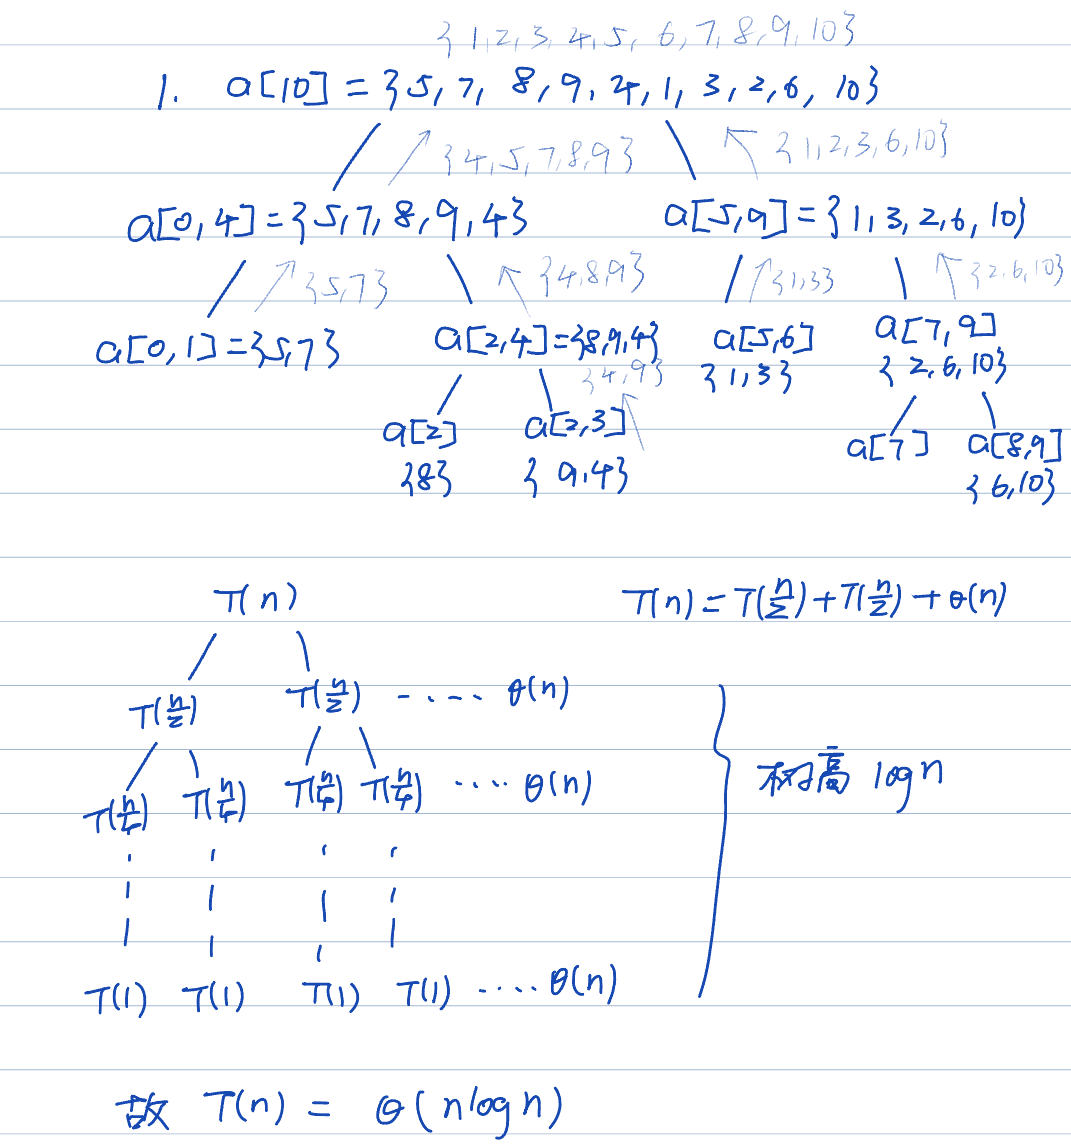 {1,2,3,4,5,6,7,8,9,10}
1. a[10] = {5,7,8,9,4,1,3,2,6,10}
{4,5,7,8,9} {1,2,3,6,10}
a[0,4]={5,7,8,9,4} a[5,9]={1,3,2,6,10}
{5,7} {4,8,9} {1,3} {2,6,10}
a[0,1]={5,7} a[2,4]={8,9,4} a[5,6] a[7,9]
{4,9} {1,3} {2,6,10}
a[2] a[2,3] a[7] a[8,9]
{8} {9,4} {6,10}
T(n) T(n)=T(n/2)+T(n/2)+θ(n)
T(n/2) T(n/2) ····· θ(n)
T(n/4) T(n/4) T(n/4) T(n/4) ···· θ(n)
树高 logn
T(1) T(1) T(1) T(1) ····· θ(n)
故 T(n) = θ(nlogn)